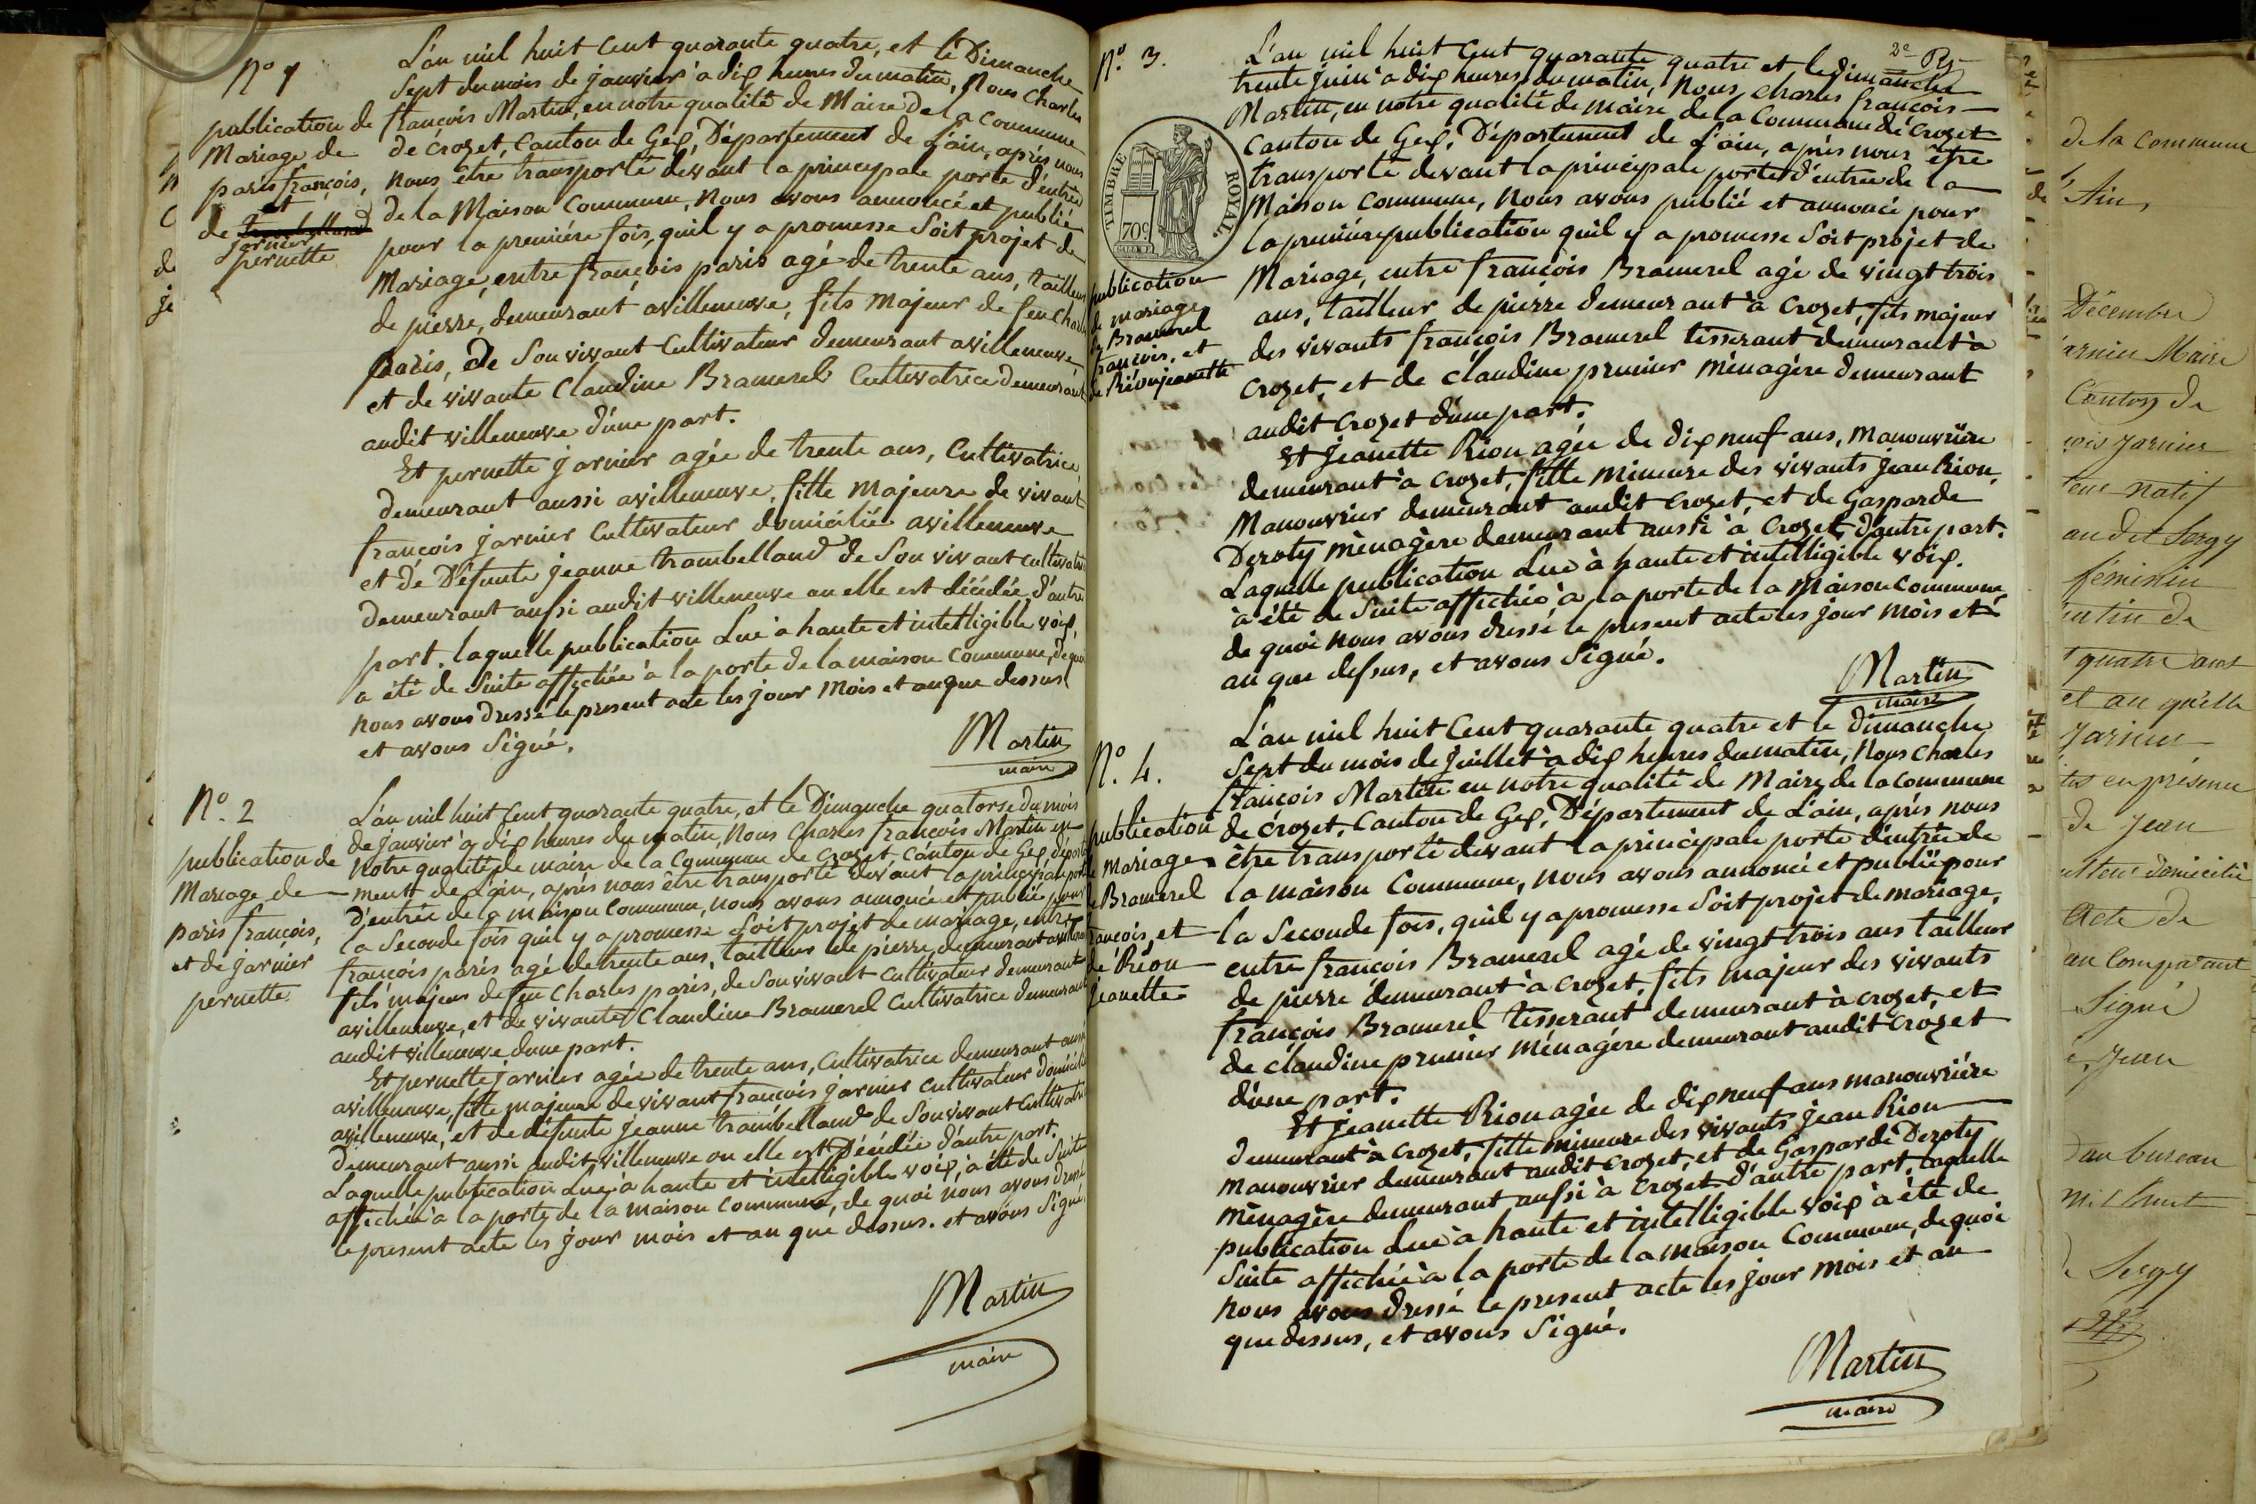 Nº 1
publication de
Mariage de
paris françois,
et
de
jarnier
pernette
L'an mil huit Cent quarante quatre, et le Dimanche
Sept du mois de janvier à dix heures du matin, Nous Charles
françois Martin, en notre qualité de Maire de la Commune
de Crozet, Canton de Gex, Département de L'ain, après nous
nous être transporté devant la principale porte d'entrée
de la Maison Commune, Nous avons annoncé et publié
pour la première fois, qu'il y a promesse Soit projet de
Mariage, entre françois paris agé de trente ans, tailleur
de pierre, demeurant avilleneuve, fils majeur de feu Charles
paris, de Son vivant Cultivateur demeurant avilleneuve,
et de vivante Claudine Bramerel Cultivatrice demeurant
audit villeneuve d'une part.
Et pernette jarnier agée de trente ans, Cultivatrice
demeurant aussi avilleneuve, fille Majeure de vivant
françois jarnier Cultivateur domicilié avilleneuve
et de Défunte jeanne trambelland de Son vivant Cultivatrice
demeurant aussi audit villeneuve ou elle est décédée d'autre
part. laquelle publication Lue à haute et intelligible voix,
a été de Suite affichée à la porte de la maison Commune, de quoi
nous avons dressé le present acte les jour Mois et an que dessus
et avons Signé.
Martin
maire
Nº. 2
publication de
Mariage de
paris françois,
et de jarnier
pernette.
L'an mil huit Cent quarante quatre, et le Dimanche quatorse du mois
de janvier à dix heures du matin, Nous Charles françois Martin en
Notre qualité de maire de la Commune de Crozet, Canton de Gex, départe
ment de L'ain, après nous être transporté devant la principale porte
d'entrée de la maison Commune, nous avons annoncé et publié pour
la Seconde fois qu'il y a promesse Soit projet de mariage, entre
françois paris agé de trente ans, tailleur de pierre, demeurant avilleneuve
fils majeur de feu Charles paris, de Son vivant Cultivateur demeurant
avilleneuve, et de vivante Claudine Bramerel Cultivatrice demeurant
audit villeneuve d'une part.
Et pernette jarnier agée de trente ans, Cultivatrice demeurant aussi
avilleneuve, fille majeure de vivant françois jarnier Cultivateur domicilié
avilleneuve, et de défunte jeanne trambelland de Son vivant Cultivatrice
demeurant aussi audit villeneuve ou elle est Décédée d'autre part.
Laquelle publication Lue à haute et intelligible voix, à été de Suite
affichée à la porte de la maison Commune, de quoi nous avons dressé
le present acte les jour mois et an que dessus. et avons Signé
Martin
maire
2e
Nº. 3.
TIMBRE ROYAL
70c
publication
de mariage
de Bramerel
françois, et
de Rion jeanette
L'an mil huit Cent quarante quatre et le dimanche
trente juin à dix heures du matin, Nous, charles françois
Martin, en notre qualité de maire de la Commune de Crozet
Canton de Gex, Département de L'ain, après nous être
transporté devant la principale porte d'entrée de la
Maison Commune, Nous avons publié et annoncé pour
la première publication qu'il y a promesse Soit projet de
Mariage, entre françois Bramerel agé de vingt trois
ans, tailleur de pierre demeurant à Crozet, fils majeur
des vivants françois Bramerel tisserant demeurant à
Crozet, et de claudine prunier Ménagère demeurant
audit Crozet d'une part.
Et jeanette Rion agée de dix neuf ans, Manouvrière
demeurant à Crozet, fille Mineure des vivants jean Rion,
Manouvrier demeurant audit Crozet, et de Gasparde
Deroty ménagère demeurant aussi à Crozet d'autre part.
Laquelle publication Lue à haute et intelligible voix.
à été de Suite affichée à la porte de la Maison Commune,
de quoi nous avons dressé le present acte les jour mois et
an que dessus, et avons Signé.
Martin
maire
Nº. 4.
publication
de mariage
de Bramerel
françois, et
de Rion
jeanette
L'an mil huit Cent quarante quatre et le Dimanche
Sept du mois de juillet à dix heures du matin, Nous Charles
françois Martin en notre qualité de Maire de la Commune
de Crozet, Canton de Gex, Département de L'ain, après nous
être transporté devant la principale porte d'entrée de
la maison Commune, nous avons annoncé et publié pour
la Seconde fois, qu'il y a promesse Soit projet de mariage,
entre françois Bramerel agé de vingt trois ans tailleur
de pierre demeurant à crozet, fils majeur des vivants
françois Bramerel tisserant demeurant à crozet, et
de claudine prunier Ménagère demeurant audit Crozet
d'une part.
Et jeanette Rion agée de dix neuf ans manouvrière
demeurant à crozet, fille mineure des vivants jean Rion
manouvrier demeurant audit Crozet, et de Gasparde Deroty
ménagère demeurant aussi à Crozet d'autre part. laquelle
publication Lue à haute et intelligible voix à été de
Suite affichée à la porte de la maison Commune, de quoi
nous avons dressé le present acte les jour mois et an
que dessus, et avons Signé.
Martin
maire
de la commune
Ain,
Décembre
Maire
Canton de
Jarnier
natif
audit Sergy
féminin
quatre ans
et an qu'elle
Jarnier
en présence
de Jean
domicilié
Acte de
Comparant
Signé
Jean
au bureau
mil huit
Sergy